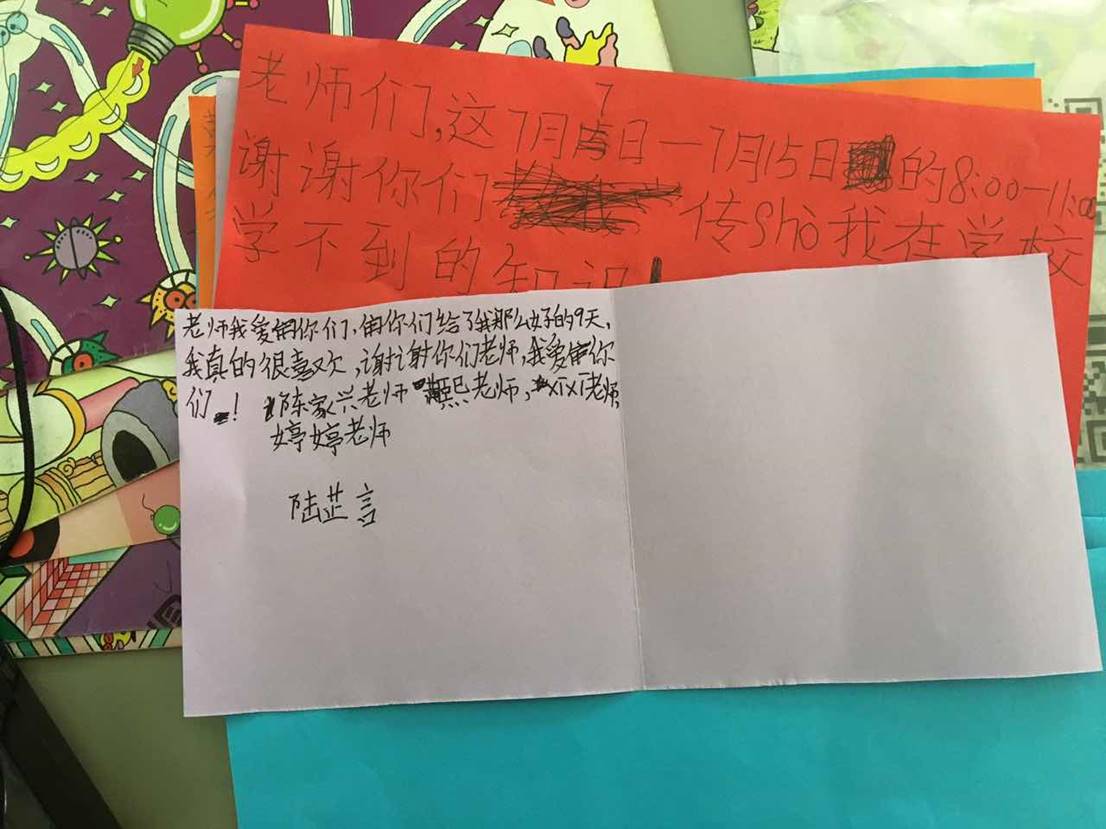 老师们,这7月7日一7月15日的8:00一11:00
谢谢你们传Shò我在学校
学不到的知识!
老师我爱你们,你们给了我那么好的9天,
我真的很喜欢,谢谢你们老师,我爱你
们!陈家兴老师 熙老师,xixi老师,
婷婷老师
陆芷言